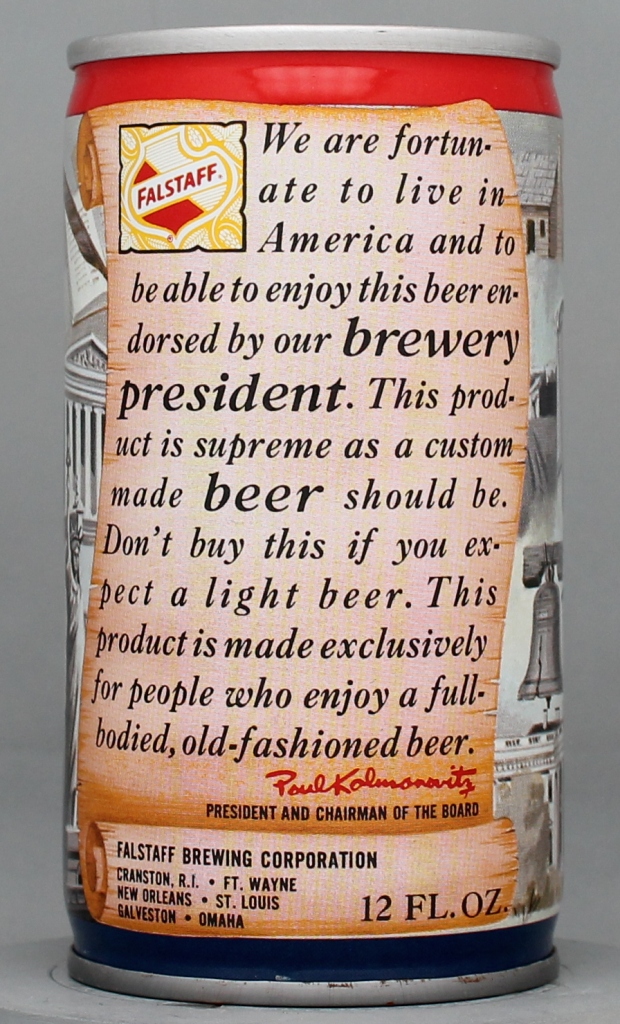 FALSTAFF®
We are fortun-
ate to live in
America and to
be able to enjoy this beer en-
dorsed by our brewery
president. This prod-
uct is supreme as a custom
made beer should be.
Don't buy this if you ex-
pect a light beer. This
product is made exclusively
for people who enjoy a full-
bodied, old-fashioned beer.
Paul Kalmanovitz
PRESIDENT AND CHAIRMAN OF THE BOARD
FALSTAFF BREWING CORPORATION
CRANSTON, R.I. • FT. WAYNE
NEW ORLEANS • ST. LOUIS
GALVESTON • OMAHA
12 FL. OZ.